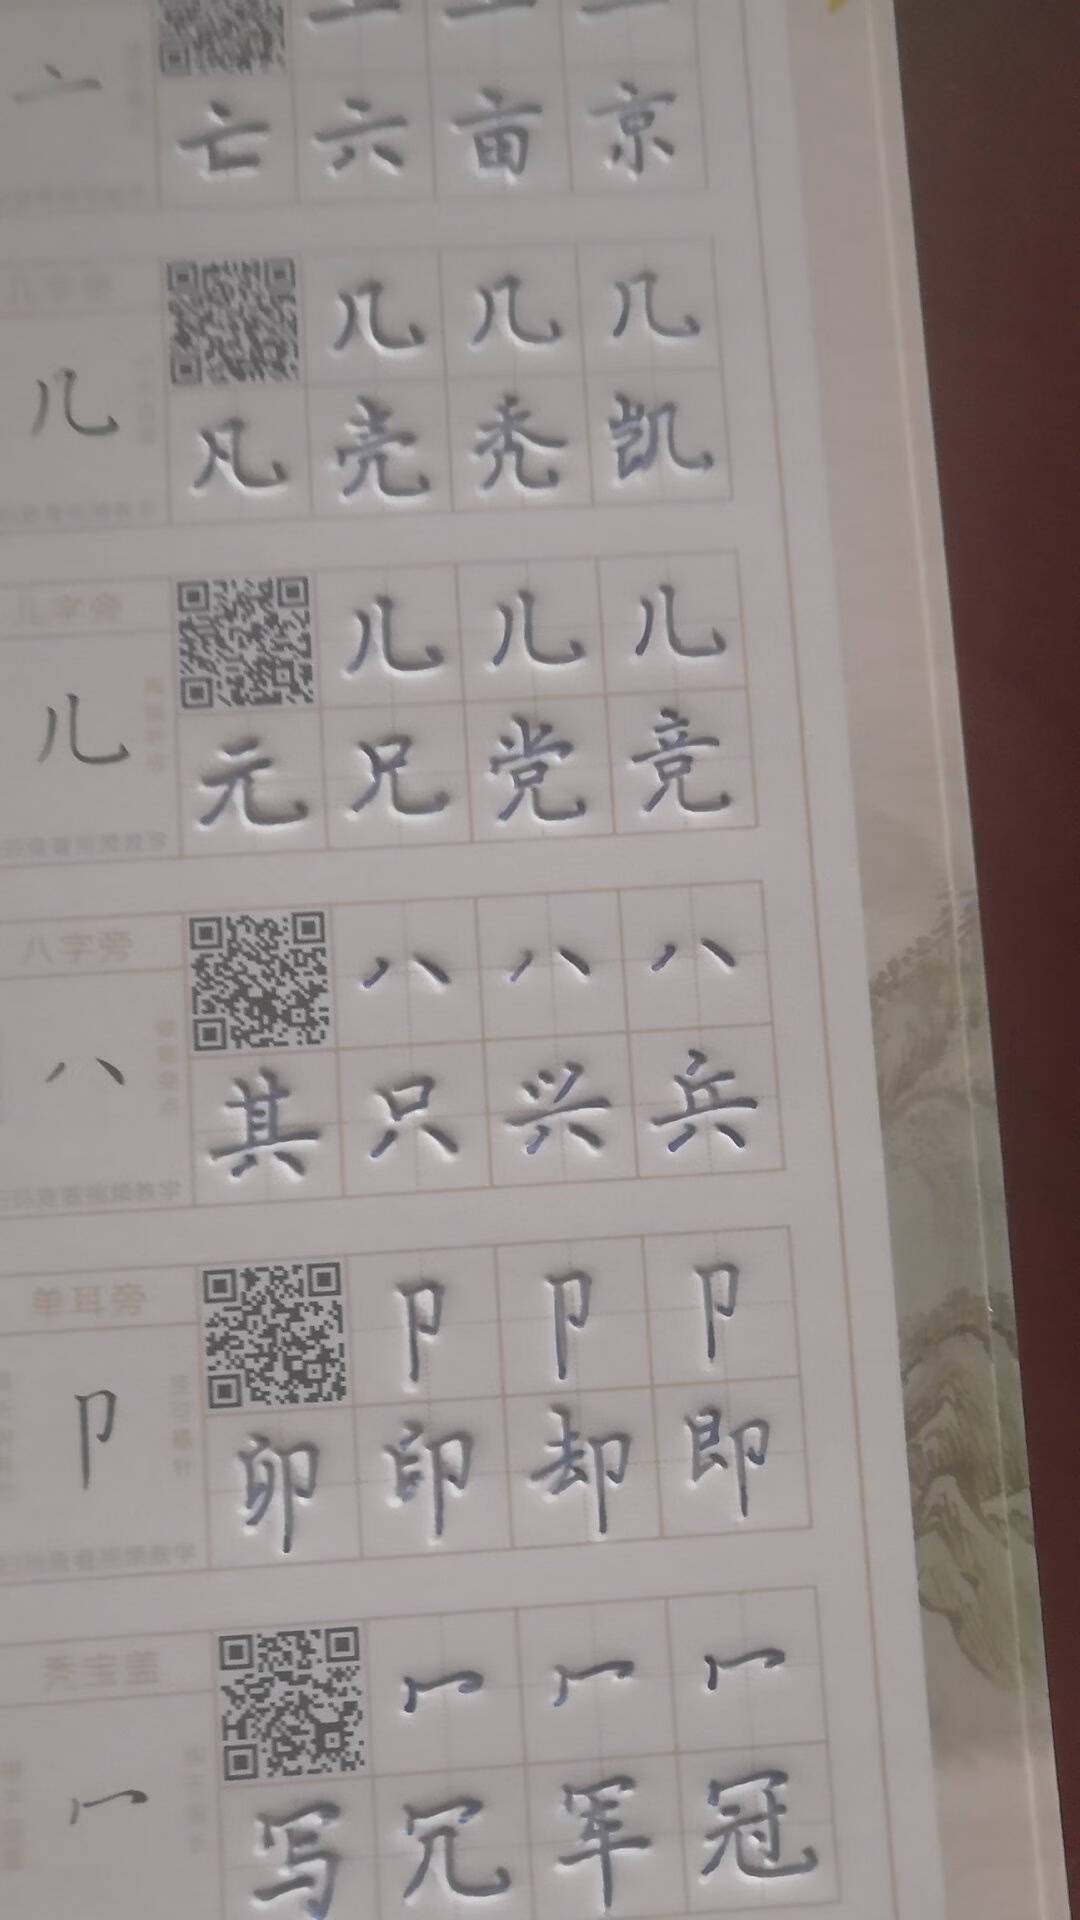 亠
亠 亠 亠
亡 六 亩 京
几字旁
几
几 几 几
凡 壳 秃 凯
儿字旁
儿
儿 儿 儿
元 兄 党 竞
八字旁
八
八 八 八
其 只 兴 兵
单耳旁
卩
卩 卩 卩
卯 印 却 即
秃宝盖
冖
冖 冖 冖
写 冗 军 冠